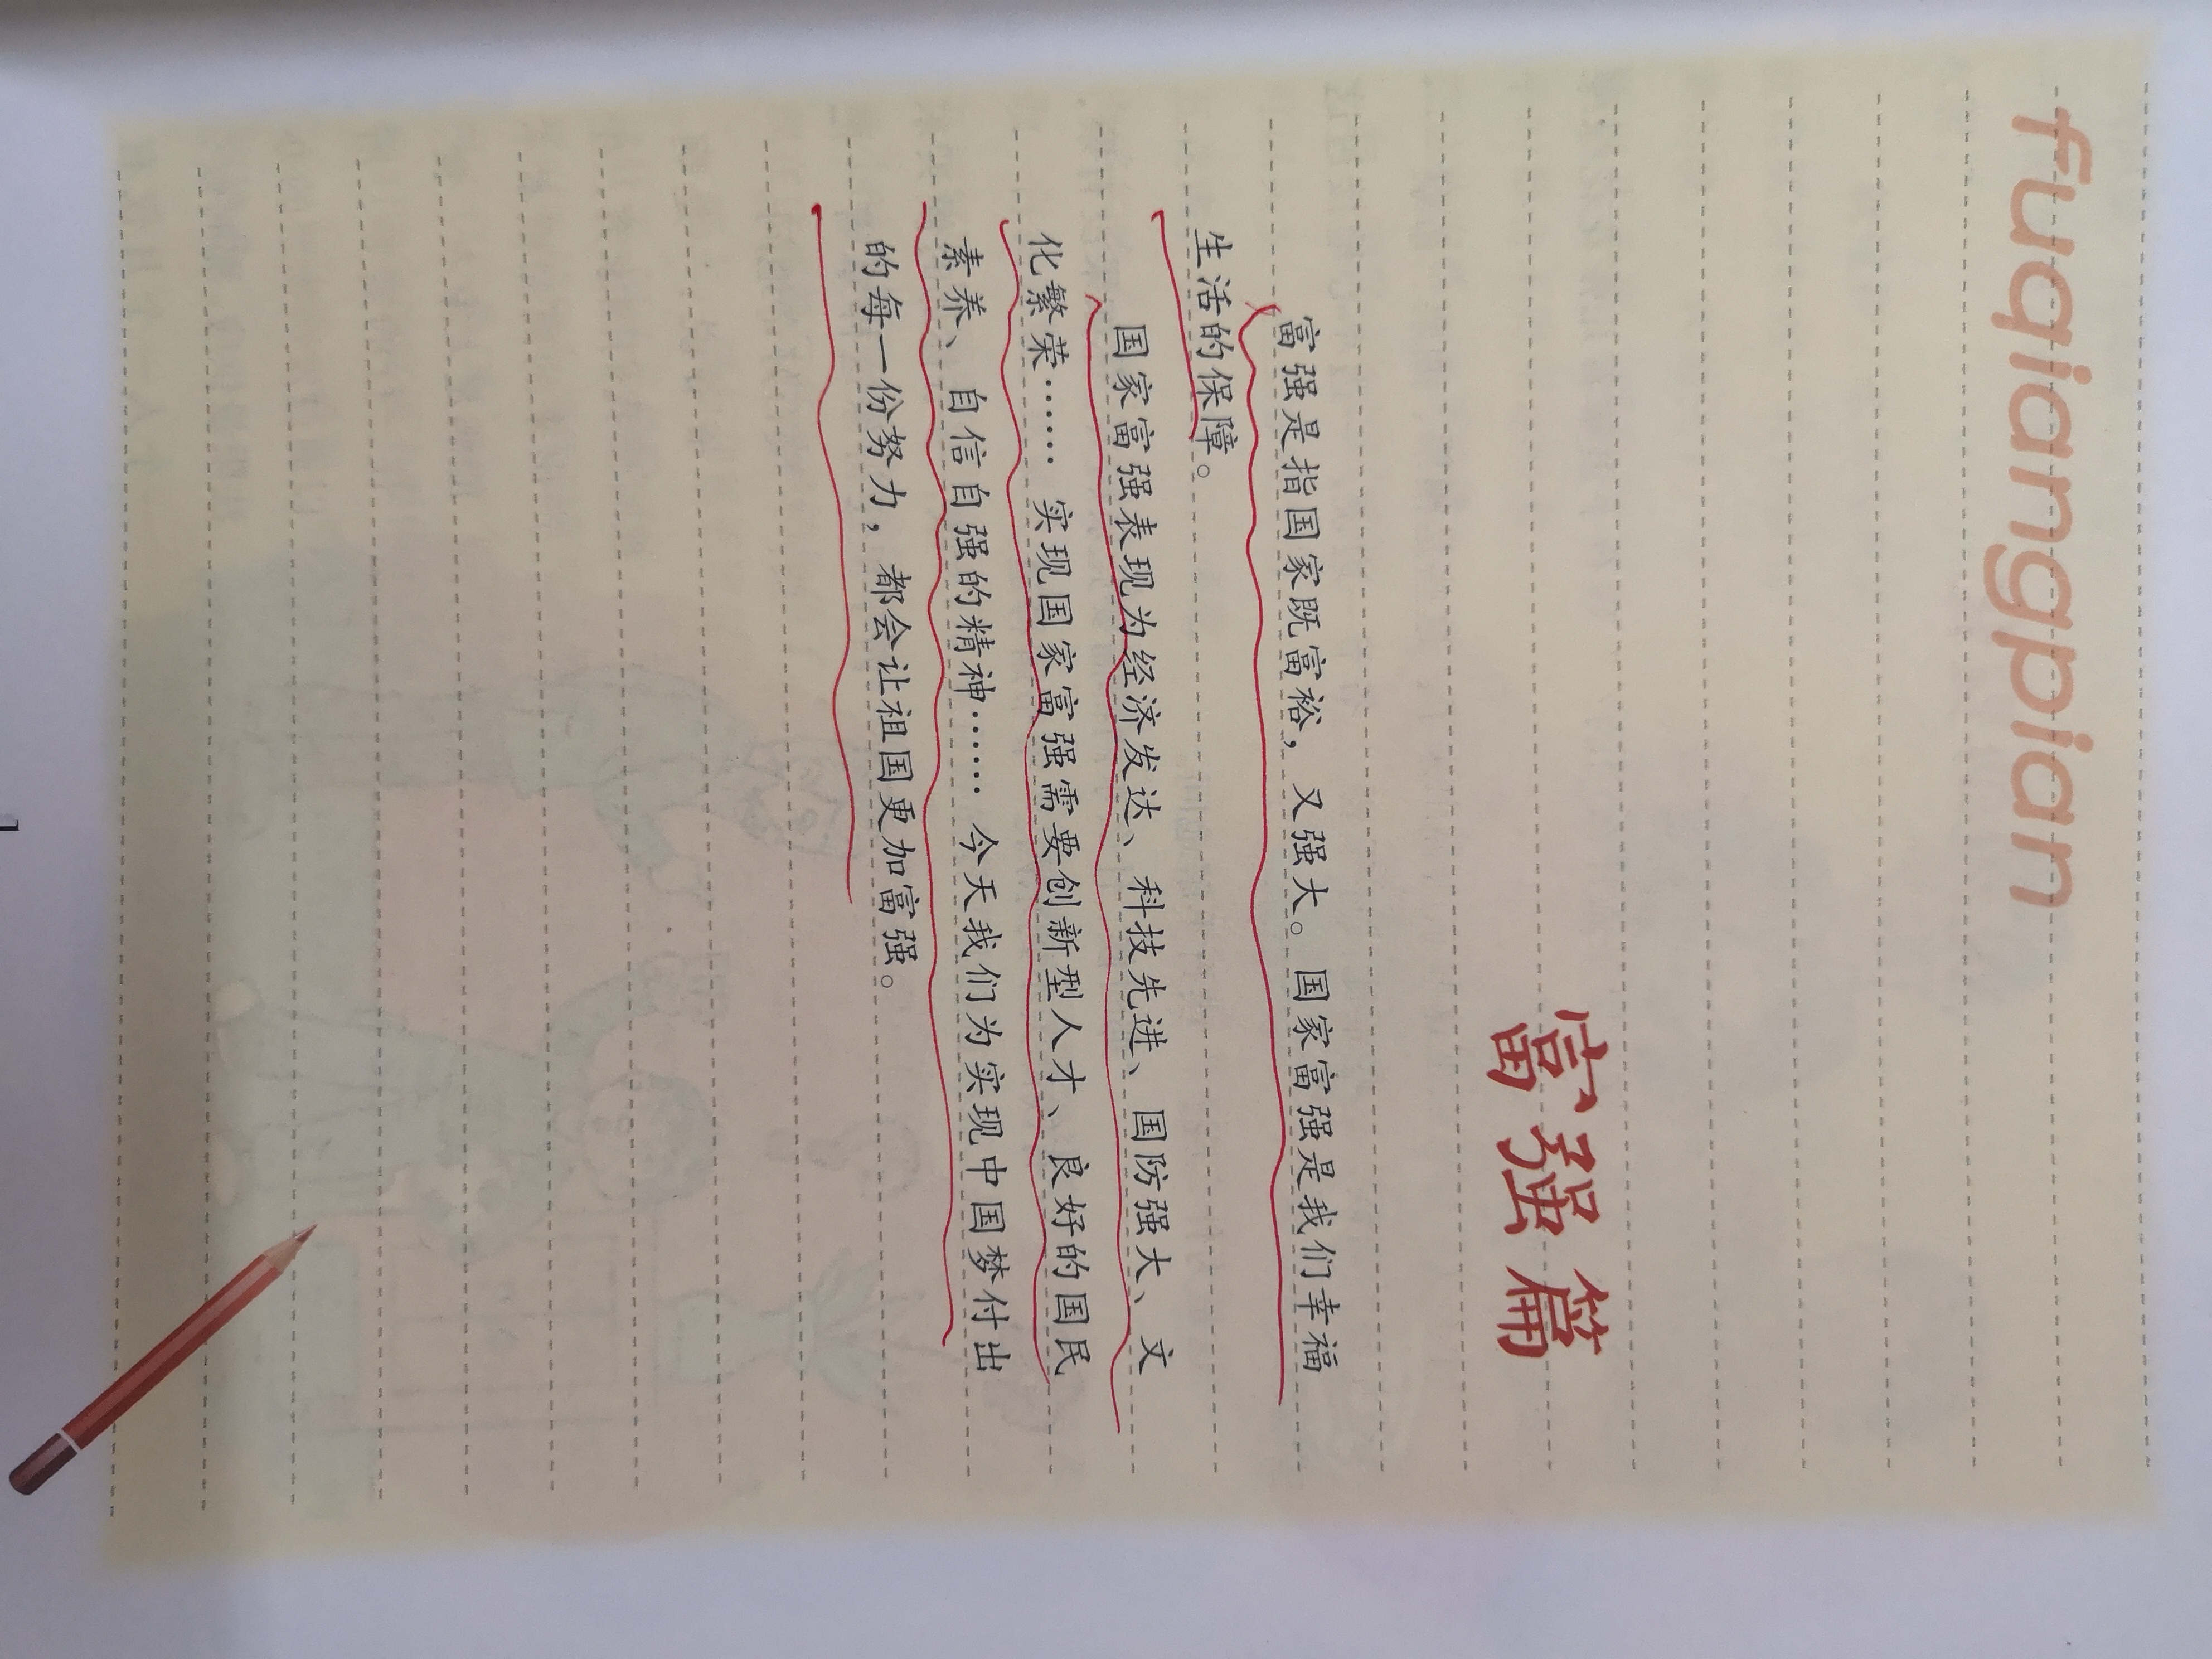 fuqiangpian
富强篇
富强是指国家既富裕，又强大。国家富强是我们幸福
生活的保障。
国家富强表现为经济发达、科技先进、国防强大、文
化繁荣……实现国家富强需要创新型人才、良好的国民
素养、自信自强的精神……今天我们为实现中国梦付出
的每一份努力，都会让祖国更加富强。